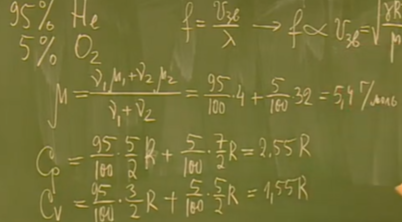 95% He
5% O₂
f = υ_зв/λ → f ∝ υ_зв = √(γR/μ
μ = (ν₁μ₁+ν₂μ₂)/(ν₁+ν₂) = 95/100·4 + 5/100·32 = 5,4 г/моль
Cp = 95/100·5/2R + 5/100·7/2R = 2.55R
Cv = 95/100·3/2R + 5/100·5/2R = 1,55R